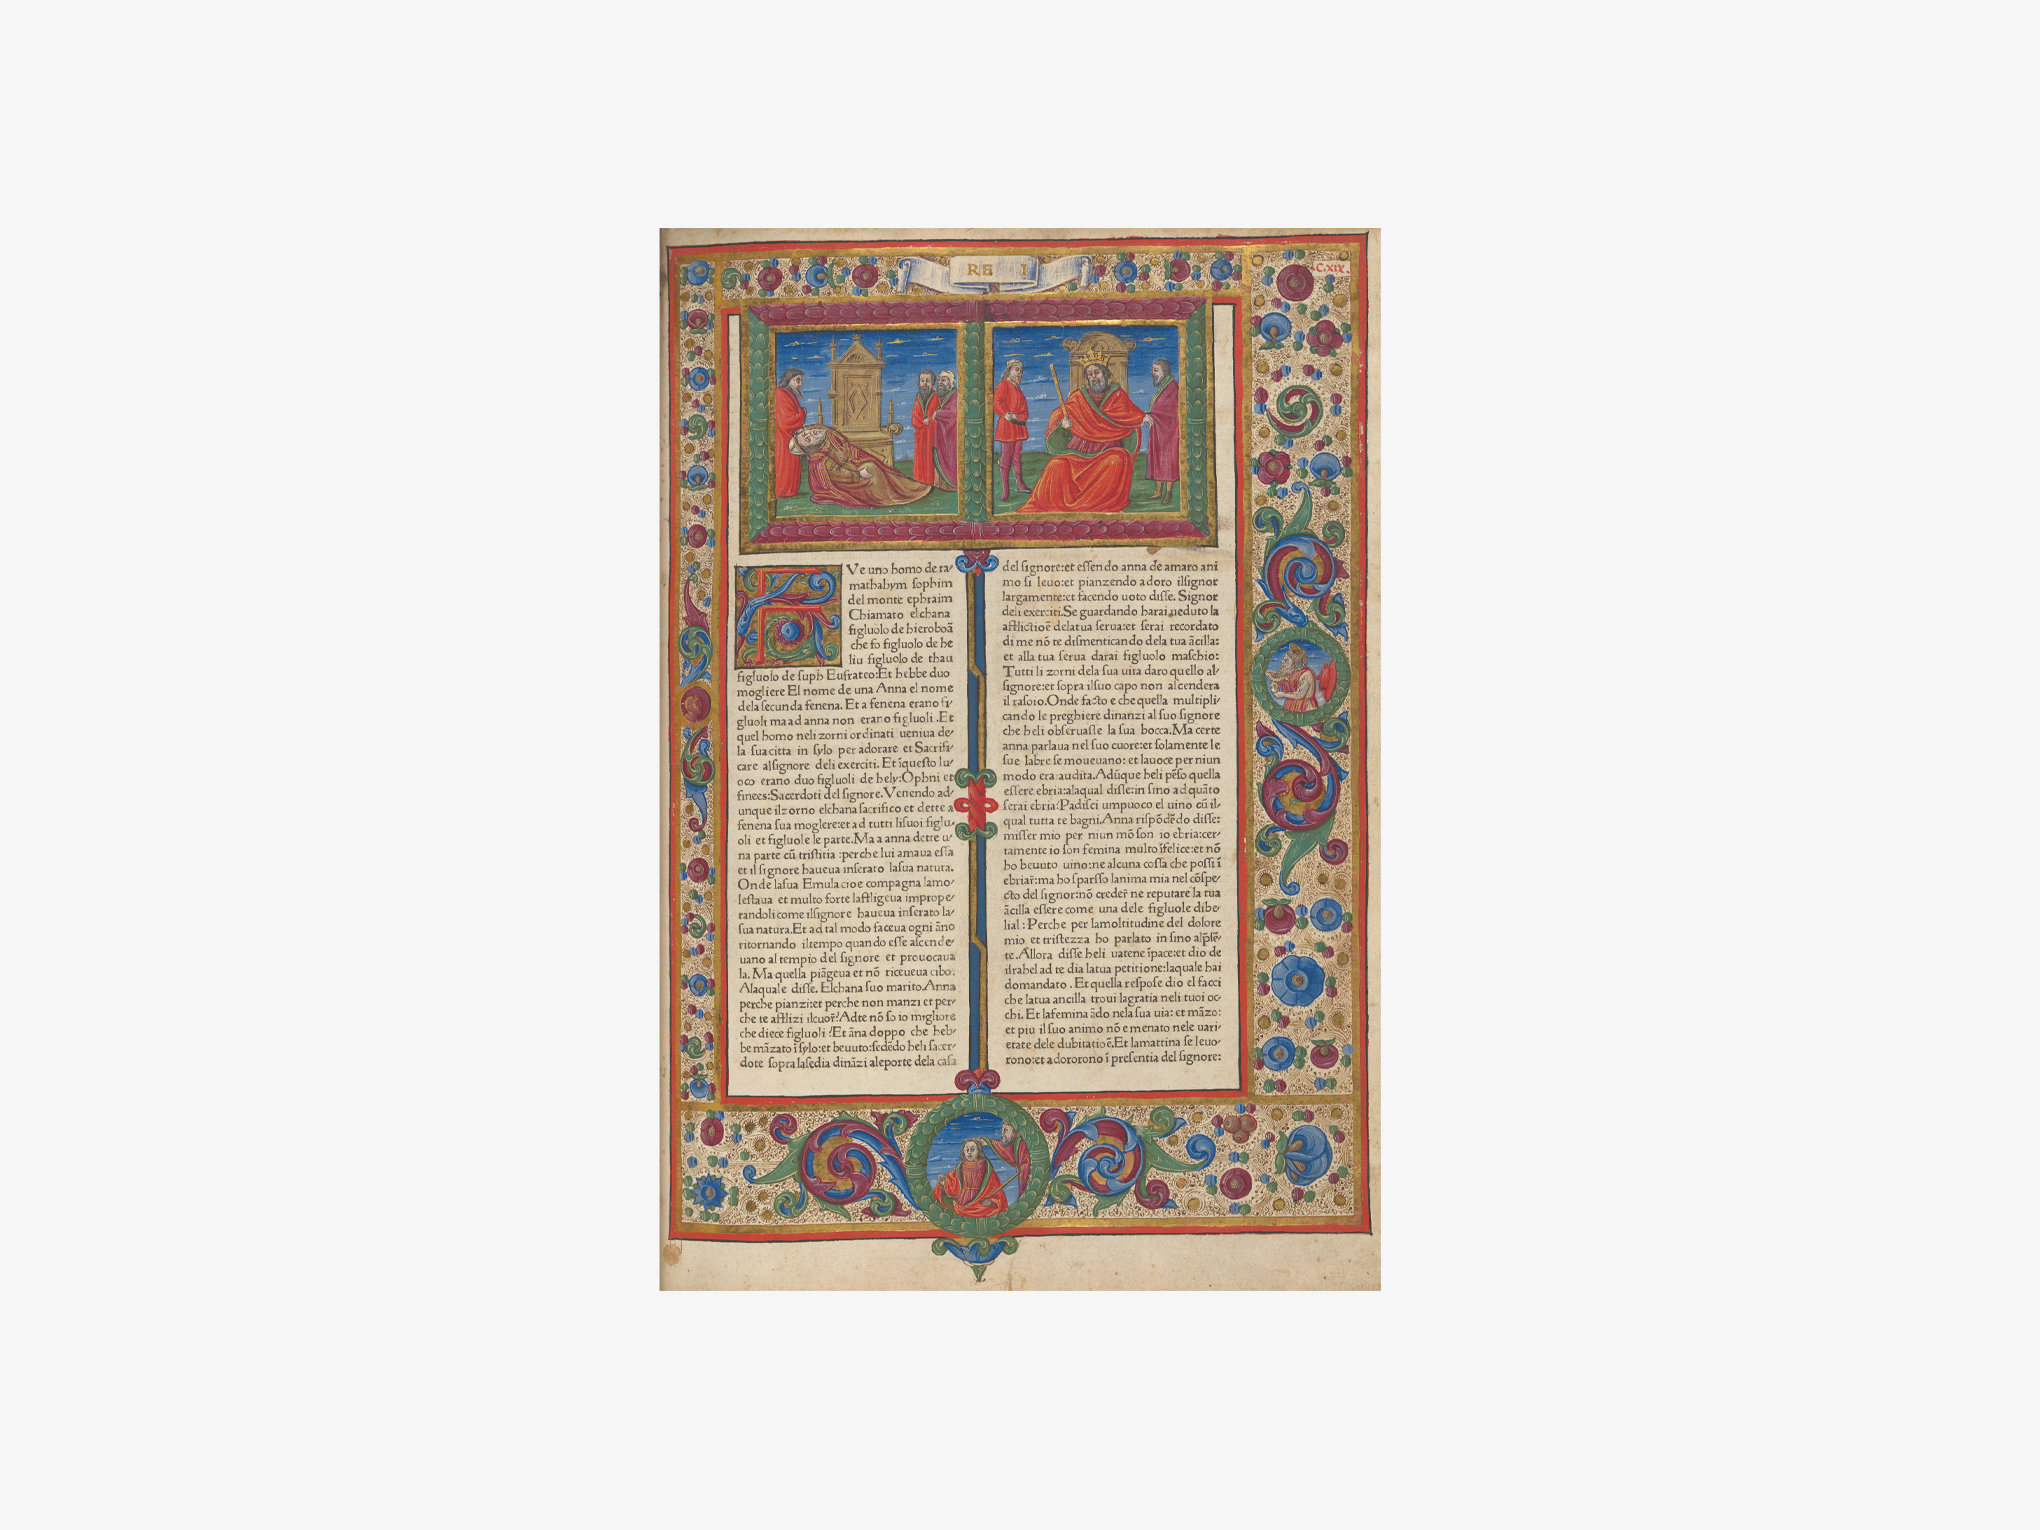 RE I
C.XIX.
F
Ve uno homo de ra/
mathahym sophim
del monte ephraim
Chiamato elchana
figluolo de hieroboã
che fo figluolo de he
liu figluolo de thau
figluolo de suph Eufrateo:Et hebbe duo
mogliere El nome de una Anna el nome
dela secunda fenena. Et a fenena erano fi/
gluoli ma ad anna non erano figluoli .Et
quel homo neli zorni ordinati ueniua de/
la sua citta in sylo per adorare et Sacrifi/
care alsignore deli exerciti. Et ĩquesto lu/
oco erano duo figluoli de hely:Ophni et
finees:Sacerdoti del signore.Venendo ad/
unque ilzorno elchana sacrifico et dette a
fenena sua moglere:et ad tutti lisuoi figlu/
oli et figluole le parte.Ma a anna dette u/
na parte cũ tristitia :perche lui amaua essa
et il signore haueua inserato lasua natura.
Onde lasua Emula cioe compagna lamo/
lestaua et multo forte lafligeua imprope/
randoli come ilsignore haueua inserato la/
sua natura.Et ad tal modo faceua ogni ãno
ritornando iltempo quando esse ascende/
uano al tempio del signore et prouocaua
la. Ma quella piãgeua et nõ riceueua cibo.
Alaquale disse. Elchana suo marito.Anna
perche pianzi:et perche non manzi et per/
che te afflizi ilcuor̃?Adte nõ so io migliore
che diece figluoli ?Et ãna doppo che heb/
be mãzato ĩ sylo:et beuuto:sedẽdo heli sacer/
dote sopra lasedia dinãzi aleporte dela casa
del signore:et essendo anna de amaro ani
mo si leuo:et pianzendo adoro ilsignor
largamente:et facendo uoto disse. Signor
deli exerciti.Se guardando harai ueduto la
afflictiõe delatua serua:et serai recordato
di me nõ te dismenticando dela tua ãcilla:
et alla tua serua darai figluolo maschio:
Tutti li zorni dela sua uita daro quello al/
signore:et sopra ilsuo capo non ascendera
il rasoio.Onde facto e che quella multipli/
cando le preghiere dinanzi al suo signore
che heli obseruasse la sua bocca.Ma certe
anna parlaua nel suo cuore:et solamente le
sue labre se moueuano: et lauoce per niun
modo era audita.Adũque heli pẽso quella
essere ebria:alaqual disse:in sino ad quãto
serai ebria?Padisci umpuoco el uino cũ il/
qual tutta te bagni.Anna rispõdẽdo disse:
misser mio per niun mõ son io ebria:cer/
tamente io son femina multo ĩfelice:et nõ
ho beuuto uino:ne alcuna cossa che possi ĩ
ebriar̃:ma ho sparsso lanima mia nel cõspe/
cto del signor:nõ creder̃ ne reputare la tua
ãcilla essere come una dele figluole dibe/
lial : Perche per lamoltitudine del dolore
mio et tristezza ho parlato in sino alp̃sẽ/
te.Allora disse heli uatene ĩpace:et dio de
israhel ad te dia latua petitione:laquale hai
domandato . Et quella respose dio el facci
che latua ancilla troui lagratia neli tuoi oc/
chi. Et lafemina ãdo nela sua uia: et mãzo:
et piu il suo animo nõ e menato nele uari/
etate dele dubitatiõe.Et lamattina se leuo/
rono:et adororono ĩ presentia del signore: